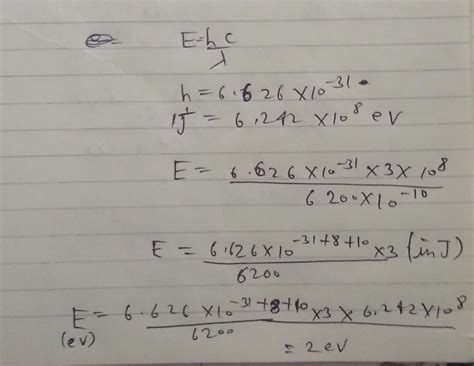 E=hc/λ
h = 6.626 ×10^-31
1J = 6.242 ×10^8 eV
E = 6.626×10^-31 ×3× 10^8 / 6200×10^-10
E = 6.626×10^-31+8+10 ×3 / 6200 (in J)
E (eV) = 6.626 ×10^-31+8+10 ×3 × 6.242 ×10^8 / 6200
= 2 eV